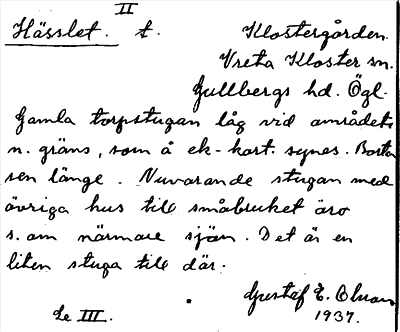 II
Hässlet. t. Klostergården.
Vreta Kloster sn.
Gullbergs hd. Ögl.
Gamla torpstugan låg vid områdets
n. gräns, som å ek-kart. synes. Borta
sen länge. Nuvarande stugan med
övriga hus till småbruket äro
s. om närmare sjön. Det är en
liten stuga till där.
Gustaf E. Olsson
1937.
Se III.